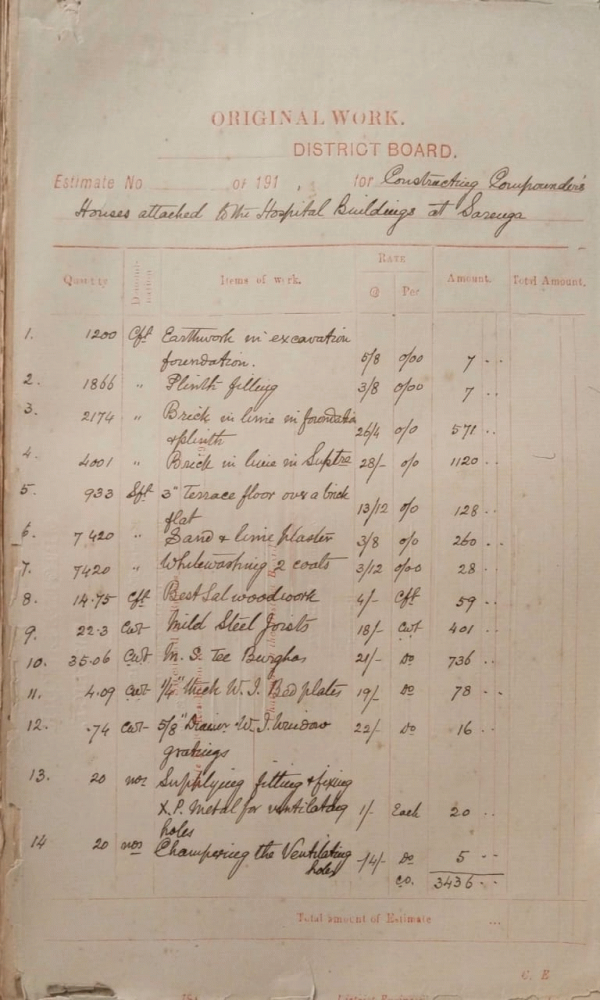 ORIGINAL WORK.
DISTRICT BOARD.
Estimate No of 191 , for Constructing Compounder's
Houses attached to the Hospital Buildings at Sarenga
RATE
Quantity Items of work. @ Per Amount. Total Amount.
1. 1200 Cft Earthwork in excavation
foundation. 5/8 o/oo 7 - -
2. 1866 " Plinth filling 3/8 o/oo 7 - -
3. 2174 " Brick in lime in foundation
& plinth 26/4 o/o 571 - -
4. 4001 " Brick in lime in Suptre 28/- o/o 1120 - -
5. 933 Sft 3" Terrace floor over a brick
flat 13/12 o/o 128 - -
6. 7420 " Sand & lime plaster 3/8 o/o 260 - -
7. 7420 " Whitewashing 2 coats 3/12 o/oo 28 - -
8. 14.75 Cft Best Sal woodwork 4/- Cft 59 - -
9. 22.3 Cwt Mild Steel Joists 18/- Cwt 401 - -
10. 35.06 Cwt M. S. Tee Burghas 21/- Do 736 - -
11. 4.09 Cwt 1/4" thick W. I. Bed plates 19/- Do 78 - -
12. .74 Cwt 5/8" W. I. Window 22/- Do 16 - -
gratings
13. 20 nos Supplying fitting & fixing
X. P. Metal for ventilating 1/- Each 20 - -
holes
14 20 nos Champering the Ventilating -/4/- Do 5 - -
holes
co. 3436 - -
Total amount of Estimate ...
C. E